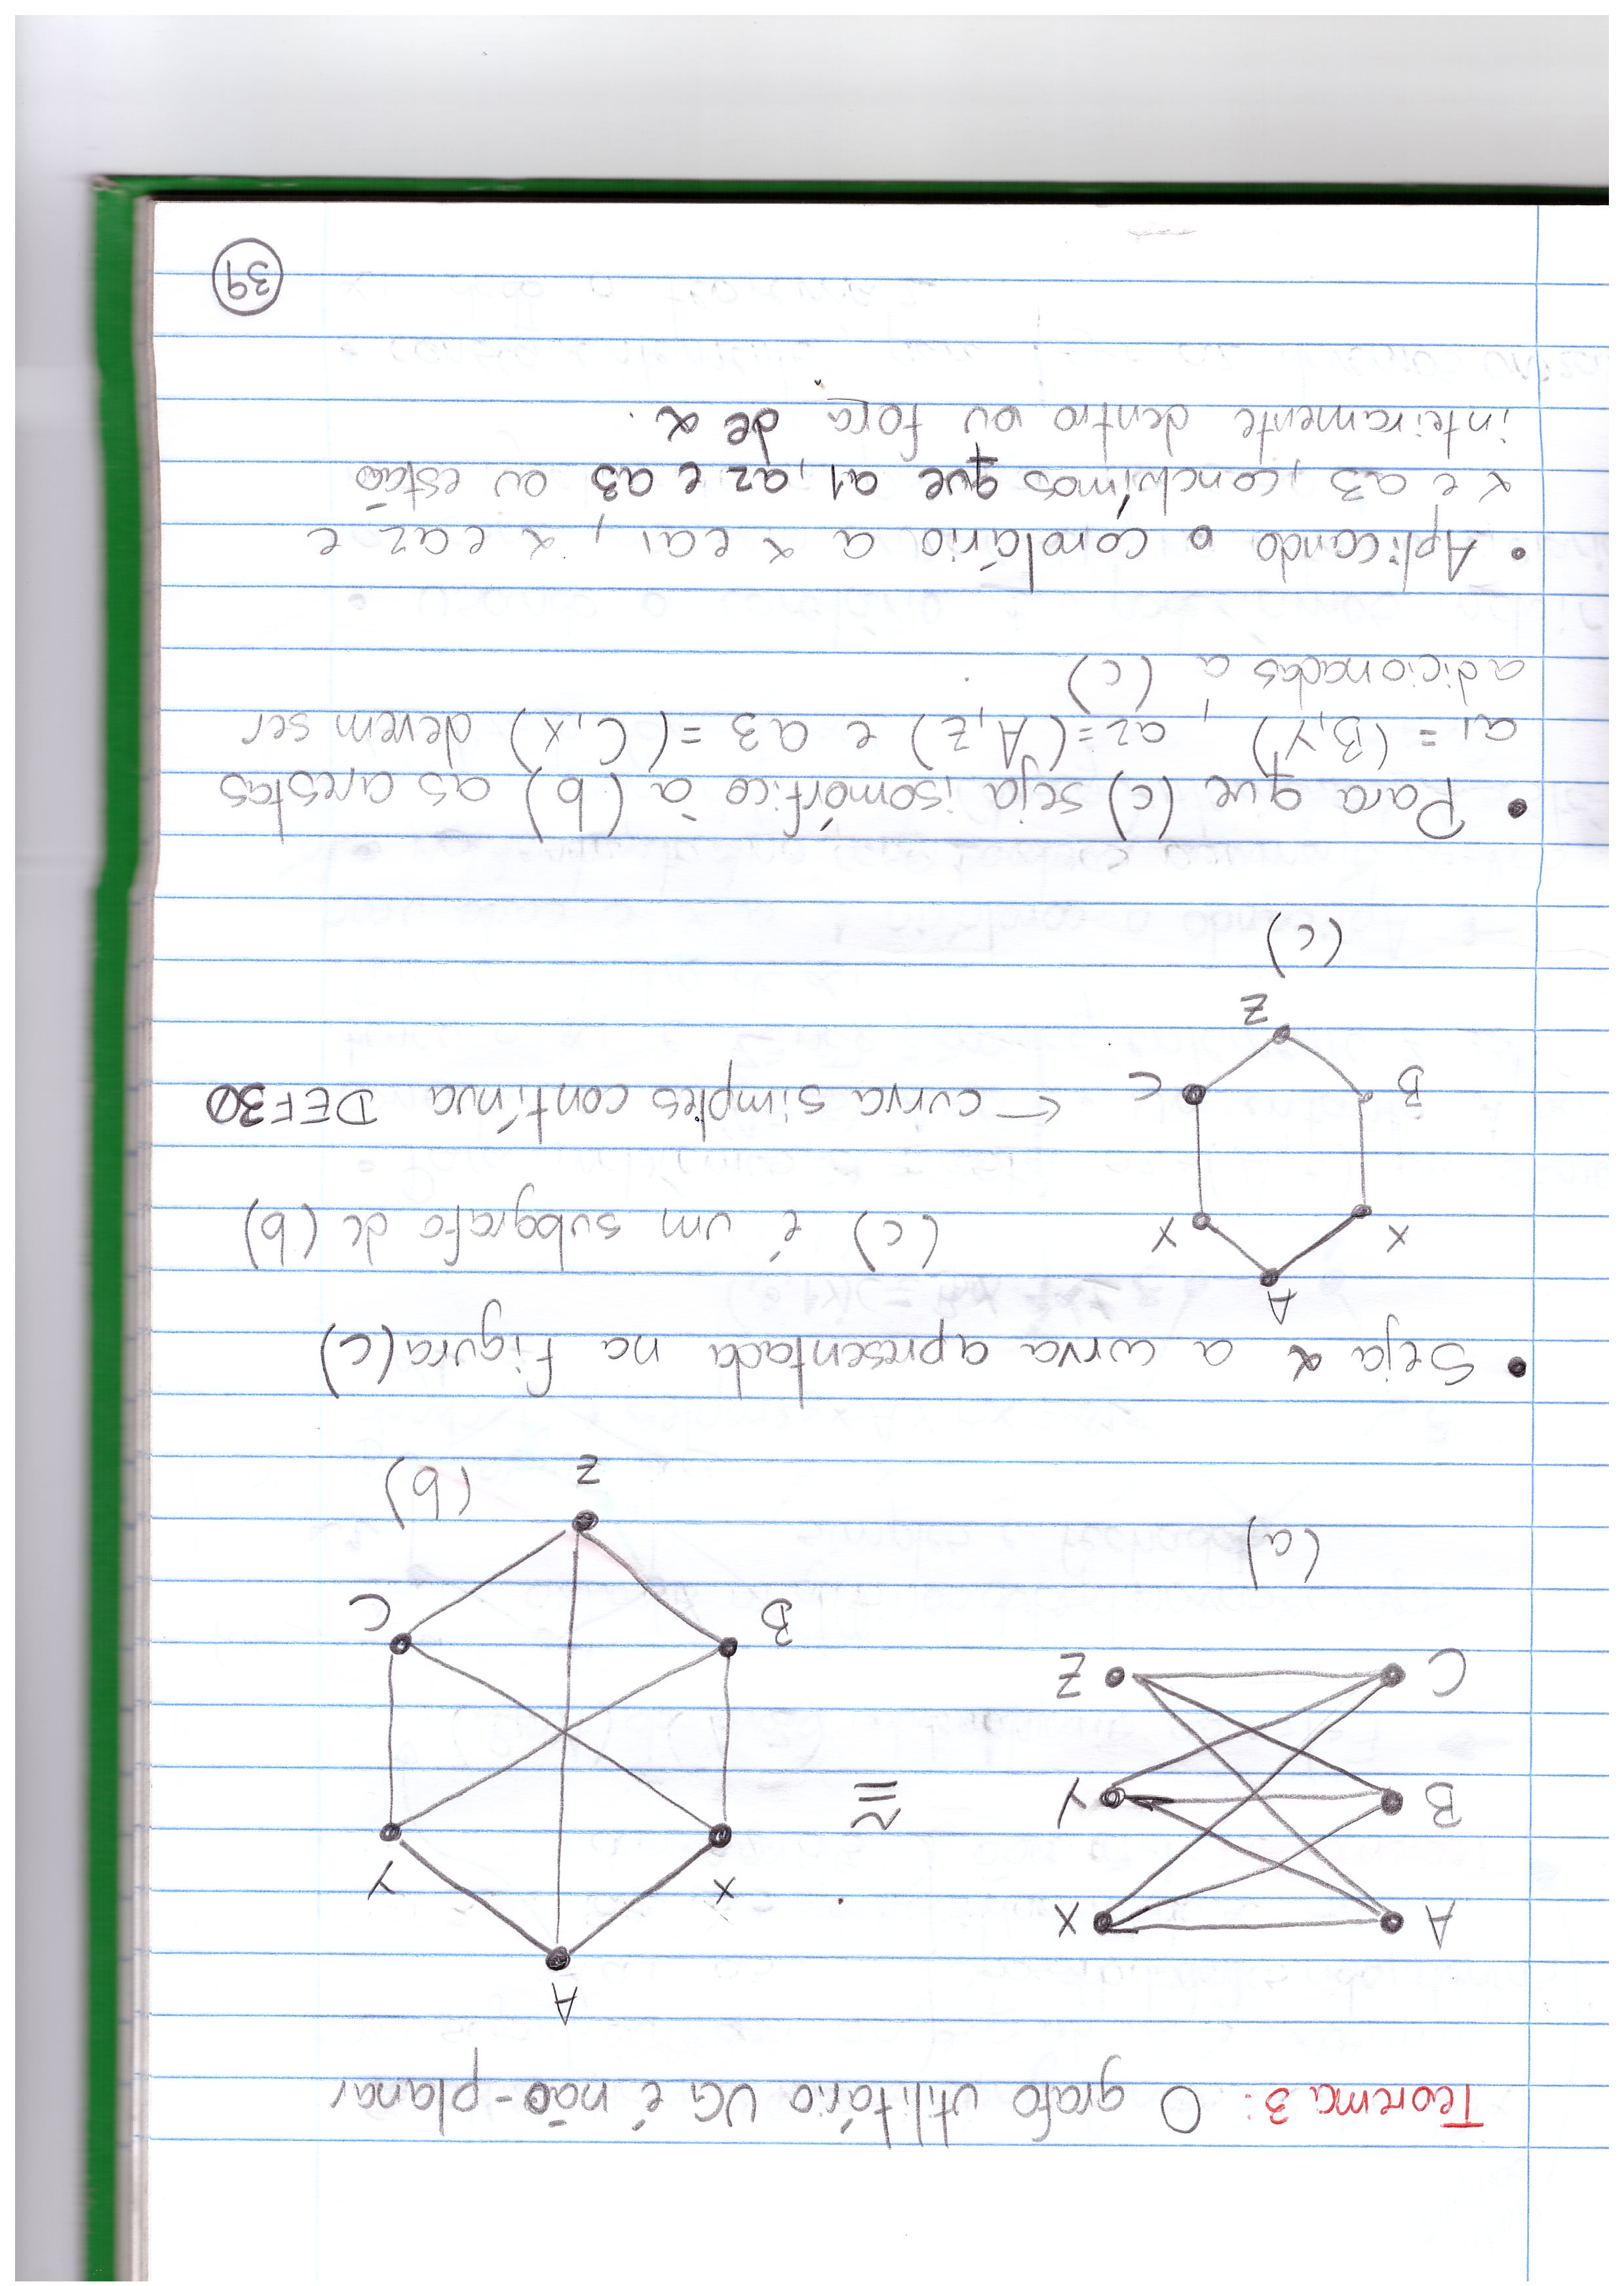 Teorema 3: O grafo utilitário UG é não-planar
A
A X
X Y
B Y
≅
C Z
B C
(a)
Z (b)
• Seja α a curva apresentada na figura (c)
A
X Y
(c) é um subgrafo de (b)
B C ← curva simples contínua DEF30
Z
(c)
• Para que (c) seja isomórfico à (b) as arestas
a1 = (B,Y) , a2=(A,Z) e a3 =(C,X) devem ser
adicionadas a (c)
• Aplicando o corolário a α e a1, α e a2 e
α e a3, concluímos que a1, a2 e a3 ou estão
inteiramente dentro ou fora de α.
39